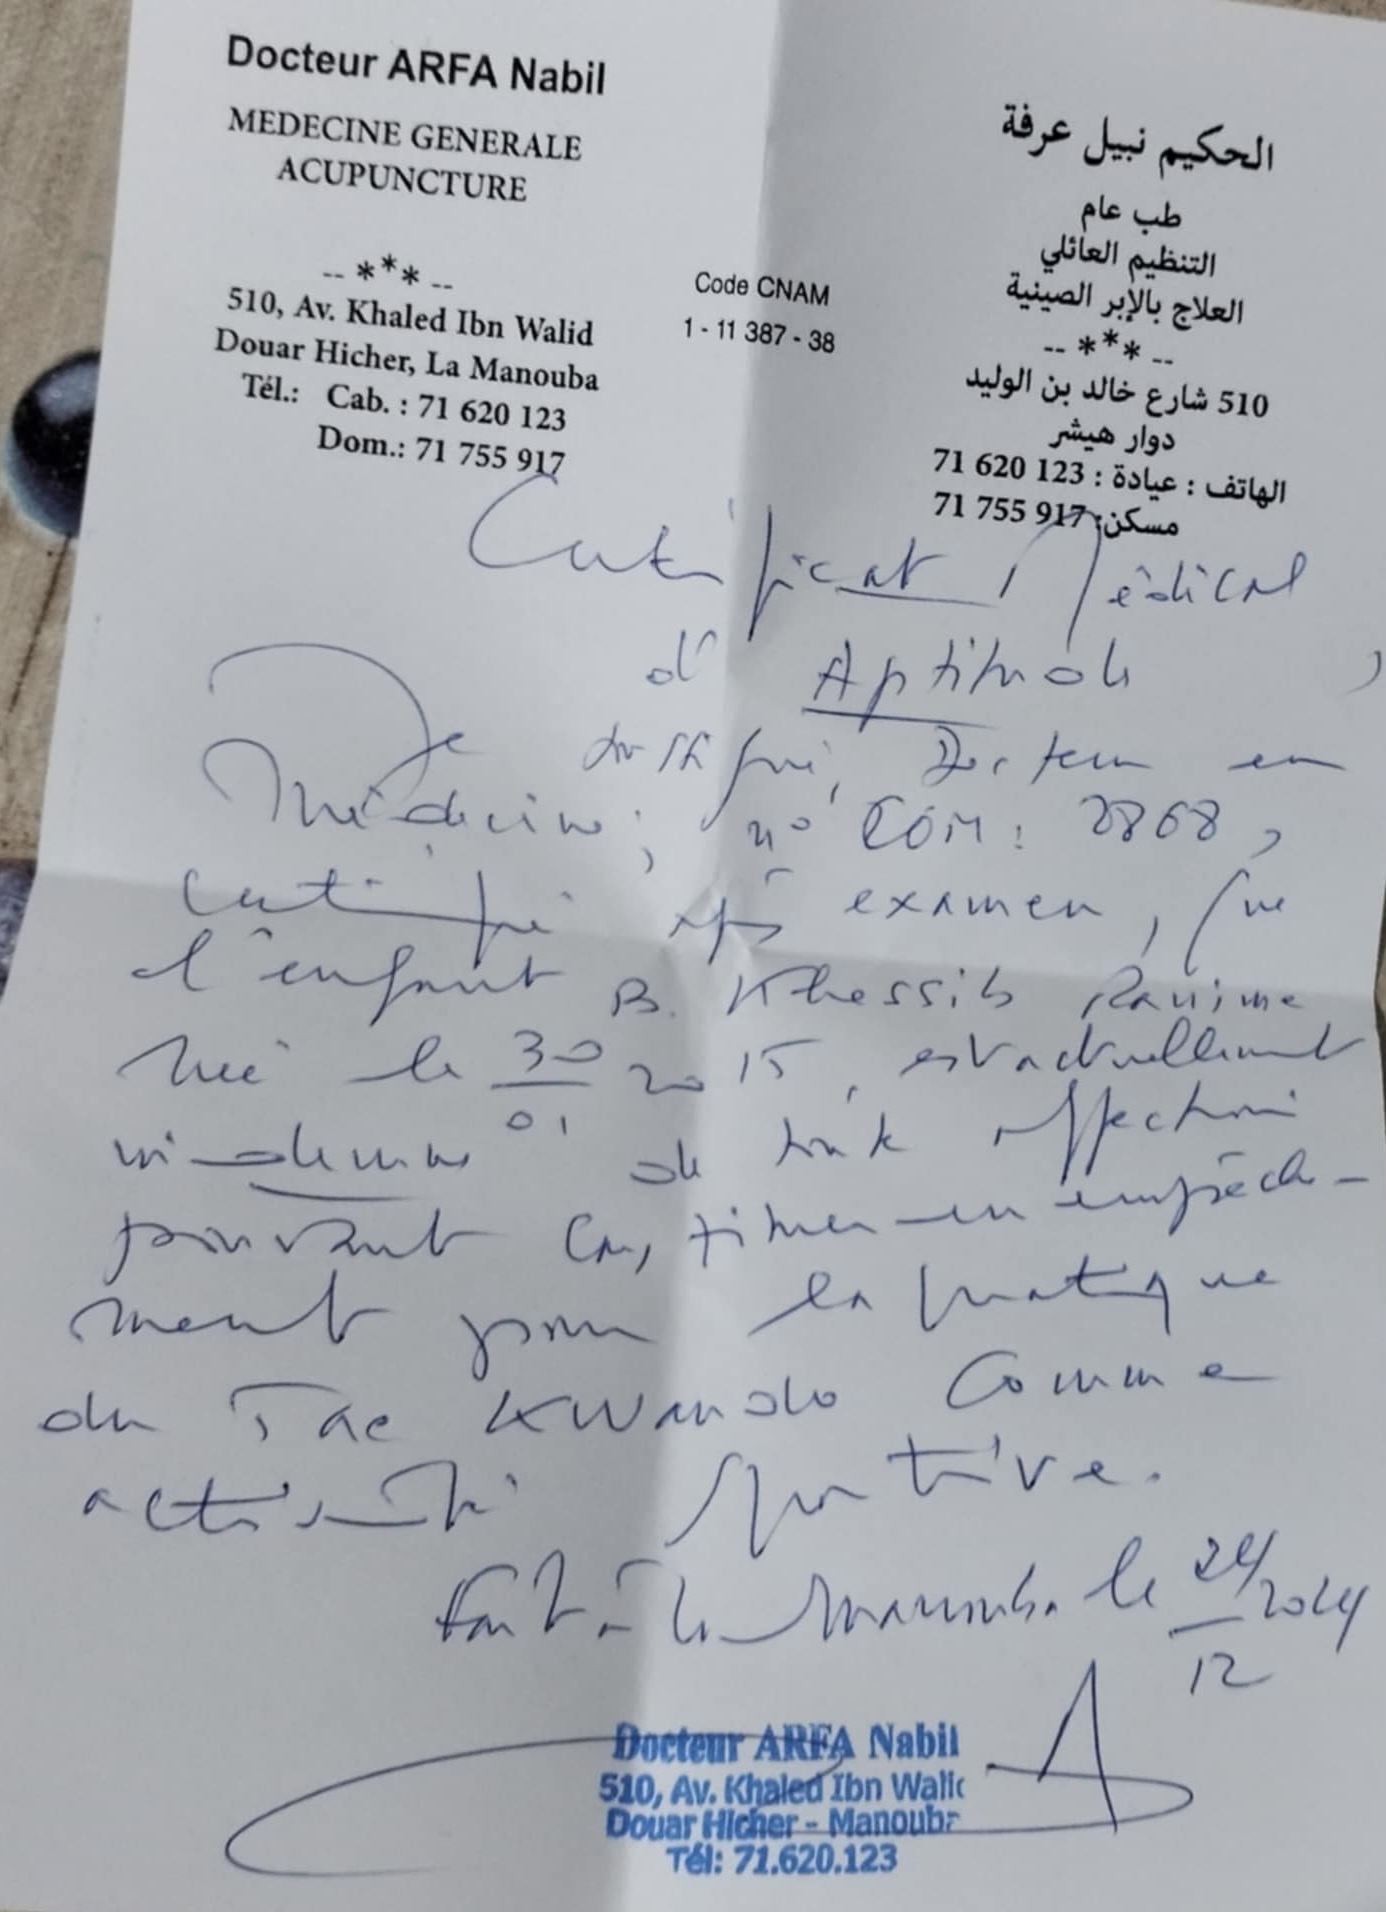 Docteur ARFA Nabil
MEDECINE GENERALE
ACUPUNCTURE
-- *** --
510, Av. Khaled Ibn Walid
Douar Hicher, La Manouba
Tél.: Cab. : 71 620 123
Dom.: 71 755 917
Code CNAM
1 - 11 387 - 38
الحكيم نبيل عرفة
طب عام
التنظيم العائلي
العلاج بالإبر الصينية
-- *** --
510 شارع خالد بن الوليد
دوار هيشر
الهاتف : عيادة : 123 620 71
مسكن: 917 755 71
Certificat Médical
d'Aptitude
Je soussigné, Docteur en
Médecine, n° COM: 2868,
certifie après examen, que
l'enfant B. Khessib Ranime
née le 30/01 2015, est actuellement
indemne de toute affection
pouvant constituer un empêche-
ment pour la pratique
du Tae Kwando comme
activité sportive.
Fait à la Manouba le 24/12/2024
Docteur ARFA Nabil
510, Av. Khaled Ibn Walid
Douar Hicher - Manouba
Tél: 71.620.123